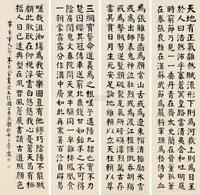 天地有正氣雜然賦流形下則為河嶽上則為日星
於人曰浩然沛乎塞蒼冥皇路當清夷含和吐明庭
時窮節乃見一一垂丹青在齊太史簡在晉董狐筆
在秦張良椎在漢蘇武節為嚴將軍頭為嵇侍中血
為張睢陽齒為顏常山舌或為遼東帽清操厲冰雪
或為出師表鬼神泣壯烈或為渡江楫慷慨吞胡羯
或為擊賊笏逆豎頭破裂是氣所磅礴凜烈萬古存
當其貫日月生死安足論地維賴以立天柱賴以尊
三綱實繫命道義為之根嗟予遘陽九隸也實不力
楚囚纓其冠傳車送窮北鼎鑊甘如飴求之不可得
陰房闃鬼火春院閟天黑牛驥同一皂雞棲鳳凰食
一朝濛霧露分作溝中瘠如此再寒暑百沴自辟易
嗟哉沮洳場為我安樂國豈有他繆巧陰陽不能賊
顧此耿耿在仰視浮雲白悠悠我心悲蒼天曷有極
哲人日已遠典型在夙昔風簷展書讀古道照顏色